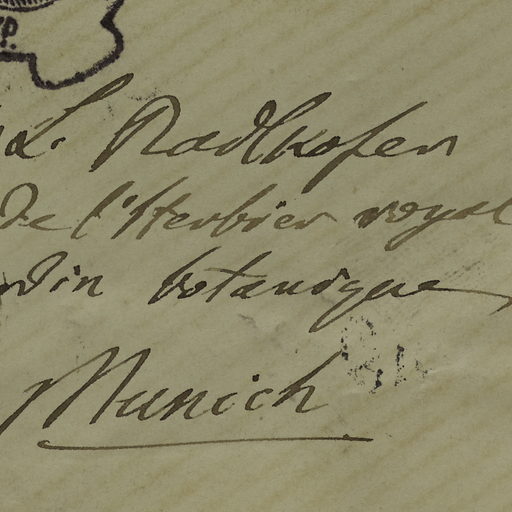 L. Radlkofer
de l'Herbier royal
din botanique
Munich